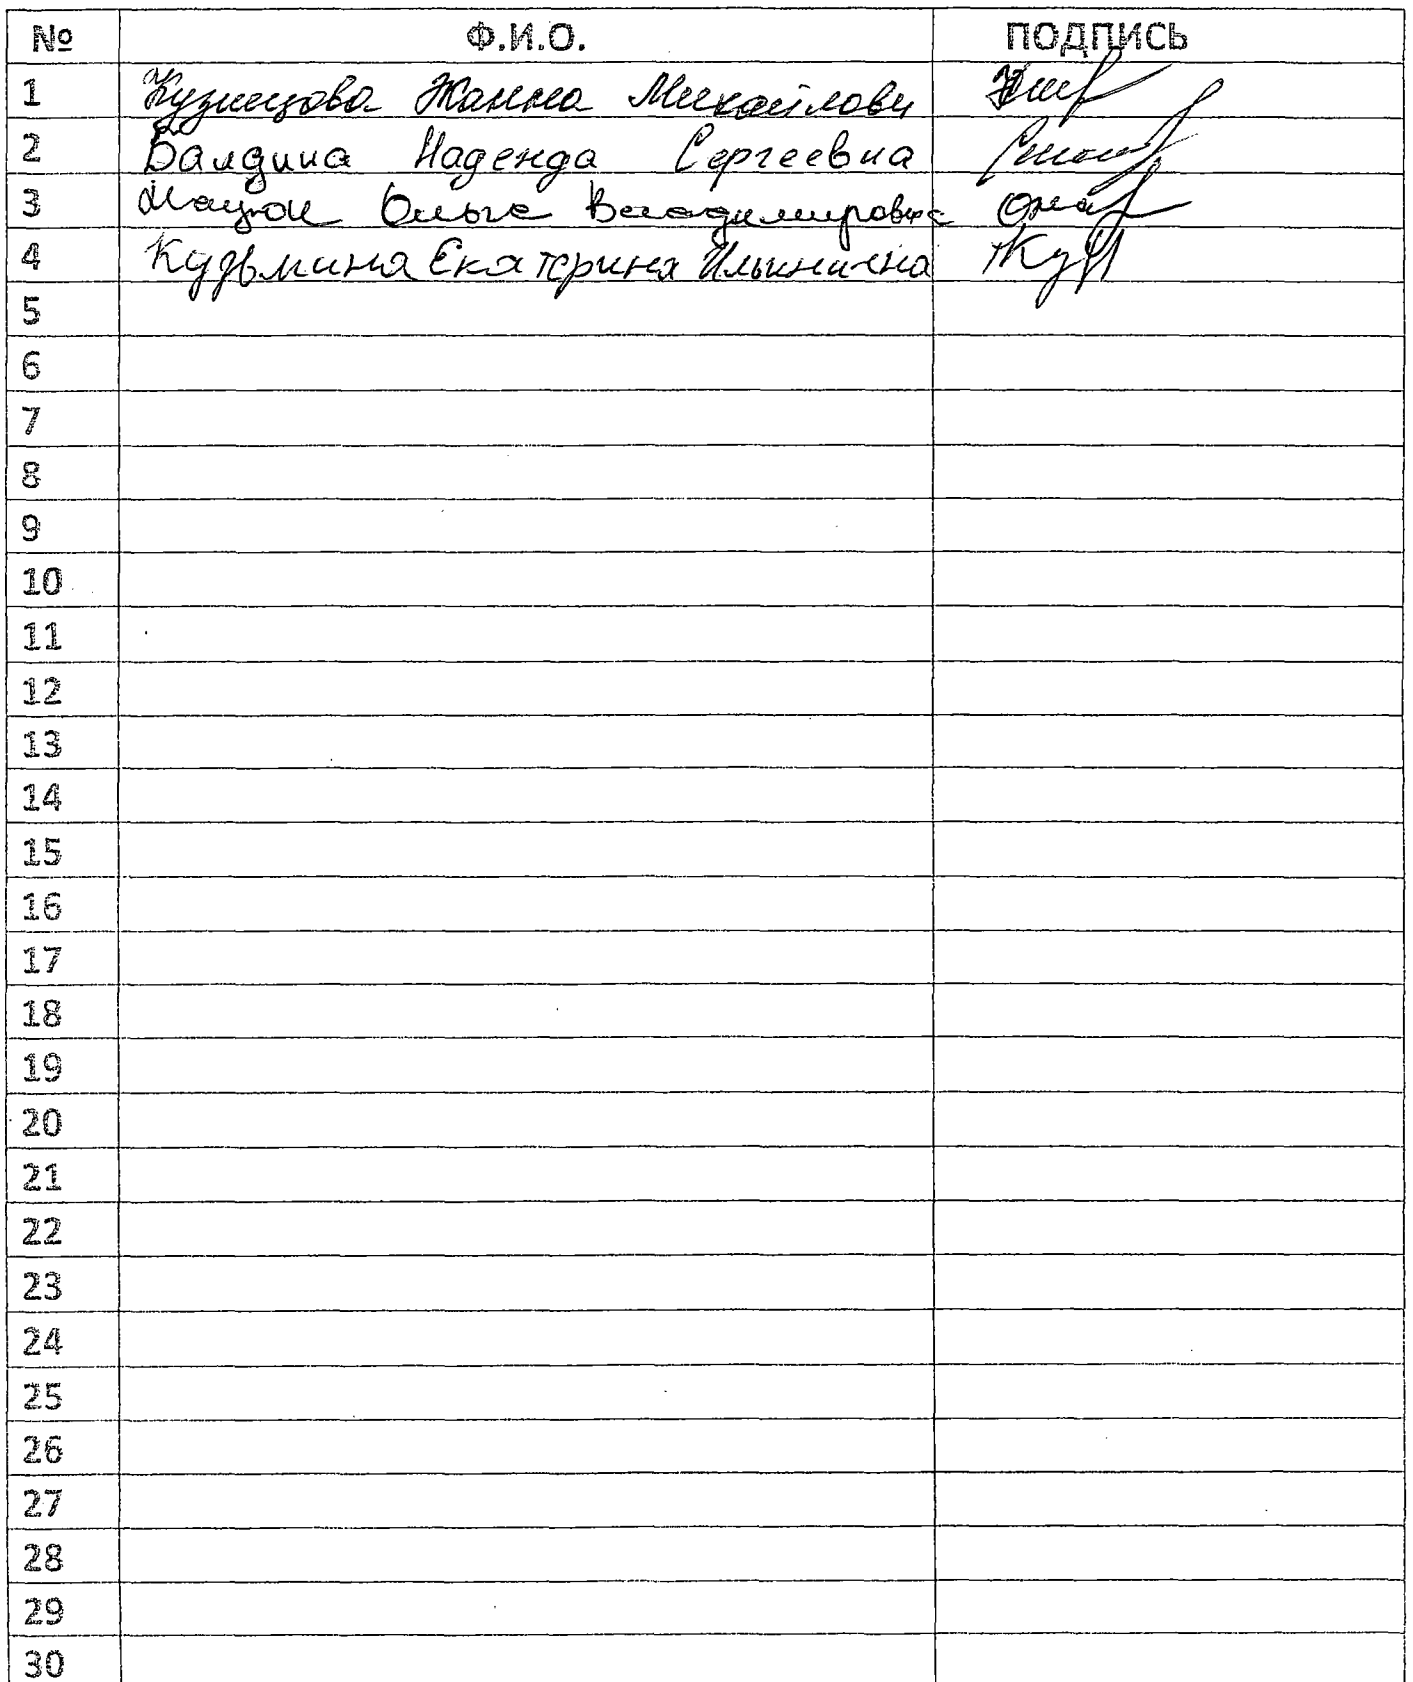 № Ф.И.О. ПОДПИСЬ
1 Кузнецова Жанна Михайловн
2 Балдина Надежда Сергеевна
3 Мацюк Ольга Владимировна
4 Кудьмина Екатерина Ильинична
5
6
7
8
9
10
11
12
13
14
15
16
17
18
19
20
21
22
23
24
25
26
27
28
29
30